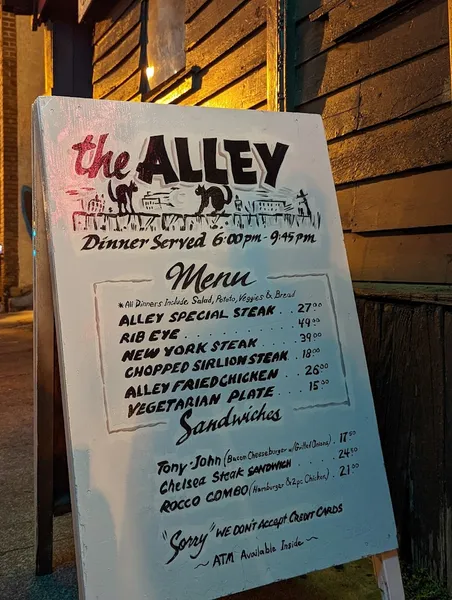 the ALLEY
Dinner Served 6:00pm - 9:45pm
Menu
*All Dinners Include Salad, Potato, Veggies & Bread
ALLEY SPECIAL STEAK . . 27.00
RIB EYE . . . . . . . . 49.00
NEW YORK STEAK . . . . 39.00
CHOPPED SIRLION STEAK . 18.00
ALLEY FRIED CHICKEN . . 26.00
VEGETARIAN PLATE . . . 15.00
Sandwiches
Tony-John (Bacon Cheeseburger w/Grilled Onions) . 17.50
Chelsea Steak SANDWICH . . . . . 24.50
ROCCO COMBO (Hamburger & 2pc. Chicken) . 21.00
"Sorry" WE DON'T ACCEPT CREDIT CARDS
~ ATM Available Inside ~